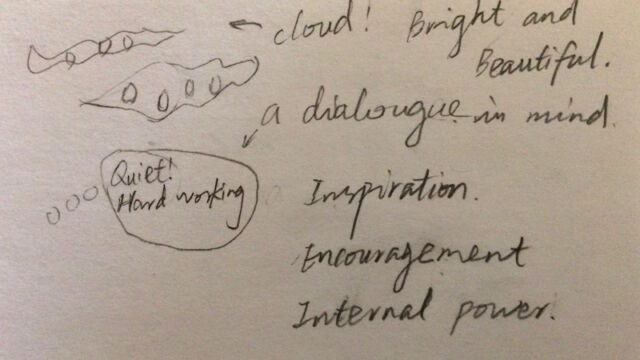 cloud! Bright and
Beautiful.
a dialougue in mind.
Quiet!
Hard working
Inspiration.
Encouragement
Internal power.